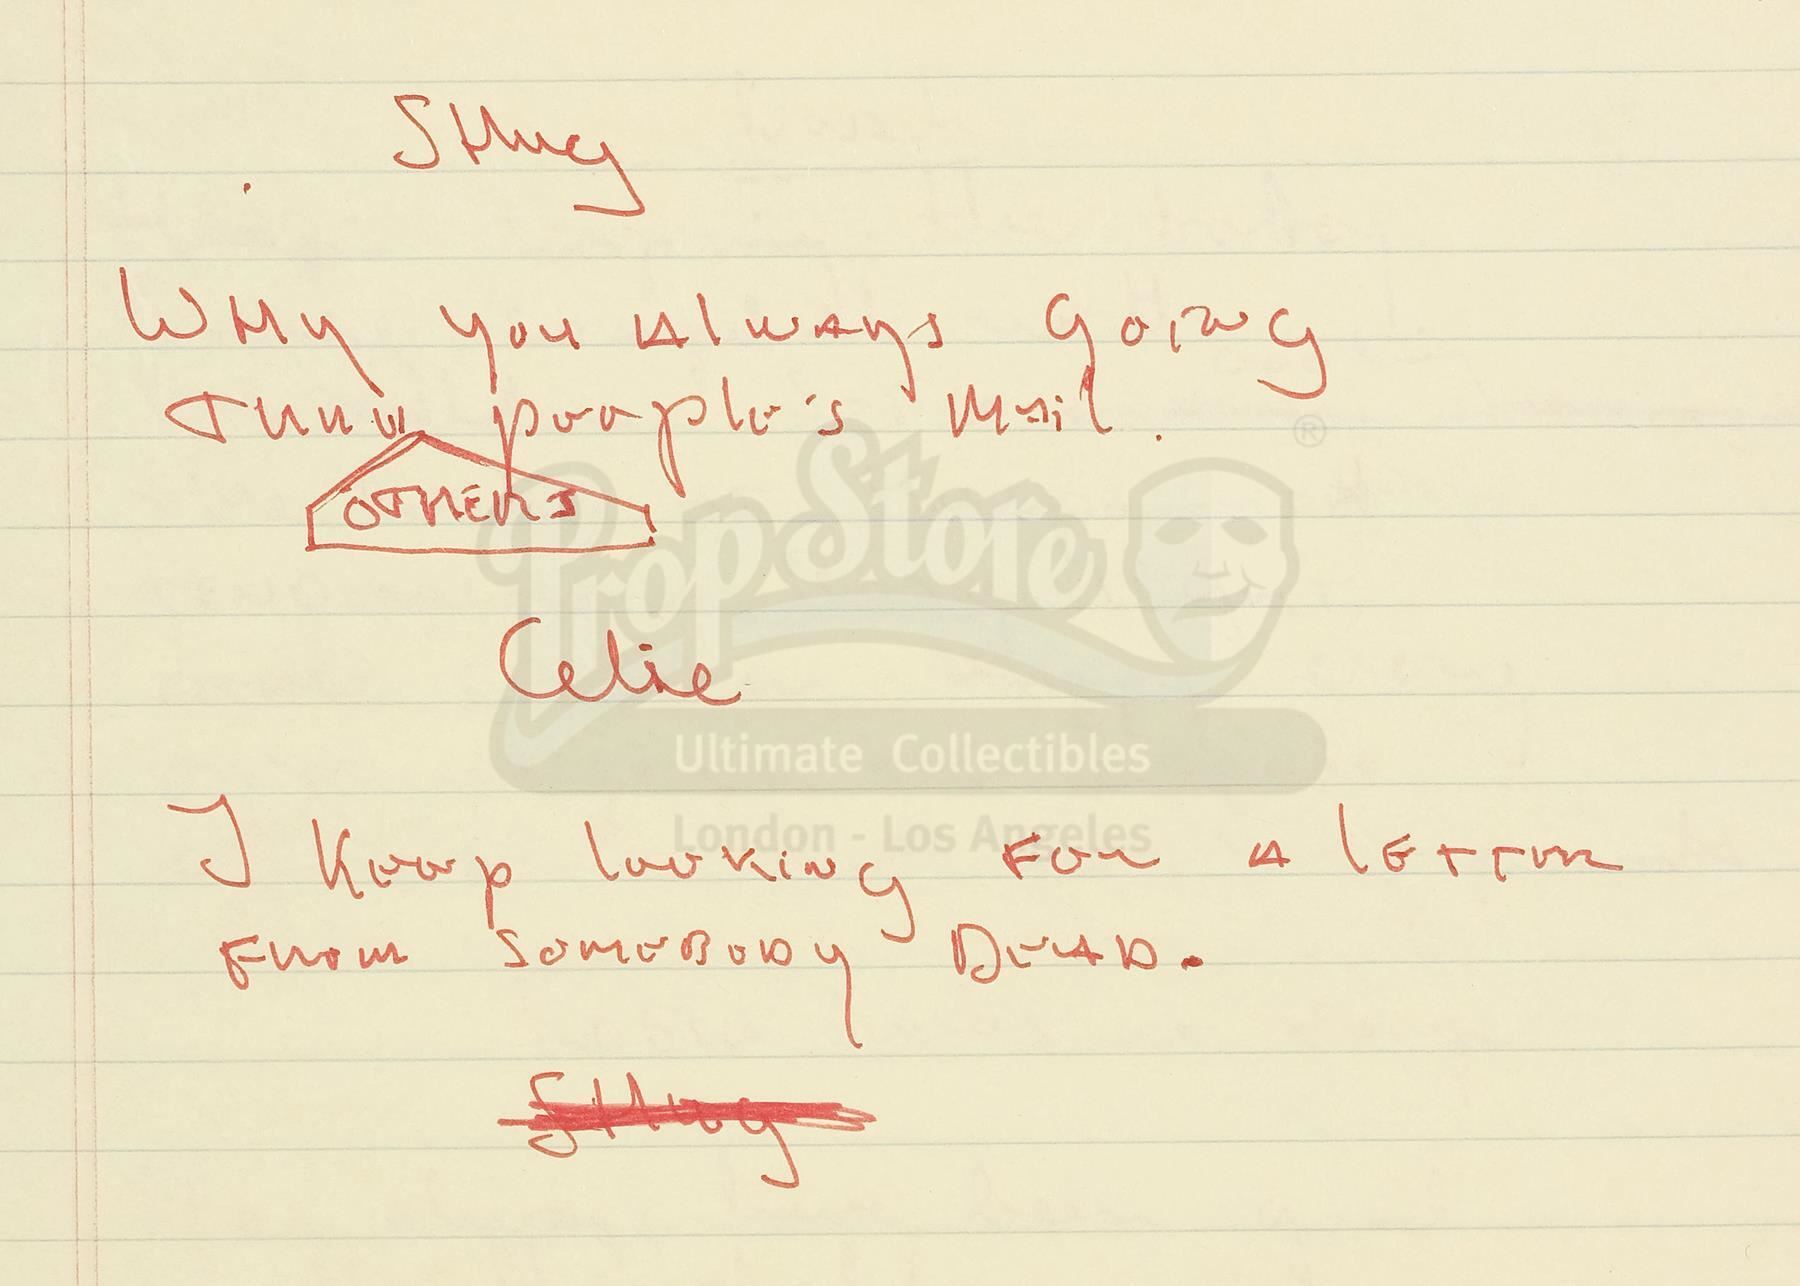 SHug
WHy you Always going
THRU people's Mail.
OTHERS
PropStore ®
Celie
Ultimate Collectibles
London - Los Angeles
I Keep looking FOR A lETTER
FROM SOMEBODy DEAD.
SHug